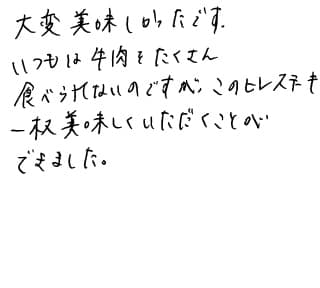 大変美味しかったです.
いつもは牛肉をたくさん
食べられないのですが、このヒレステーキ
一枚美味しくいただくことが
できました。